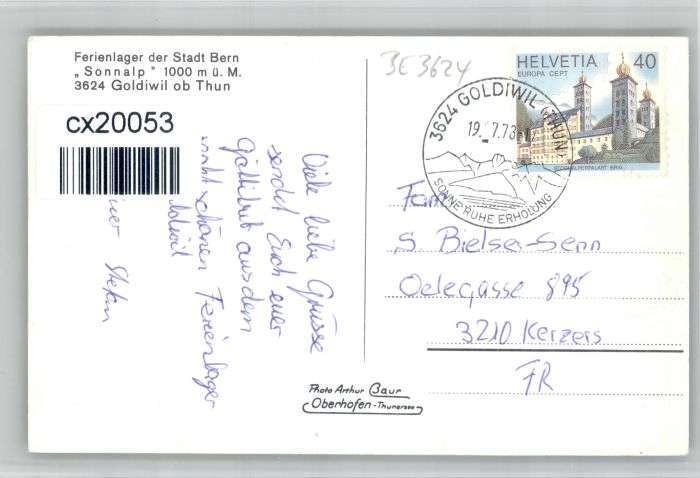 Ferienlager der Stadt Bern
„Sonnalp" 1000 m ü. M.
3624 Goldiwil ob Thun
cx20053
Viele liebe Grüsse
sendet Euch euer
Göttibub aus dem
schönen Ferienlager
Stefan
BE3624
3624 GOLDIWIL (THUN)
19. 7.78
SONNE RUHE ERHOLUNG
HELVETIA 40
EUROPA CEPT
STOCKALPERPALAST BRIG
Fam.
S Bielser-Senn
Oelegasse 895
3210 Kerzers
FR
Photo Arthur Baur
Oberhofen-Thunersee